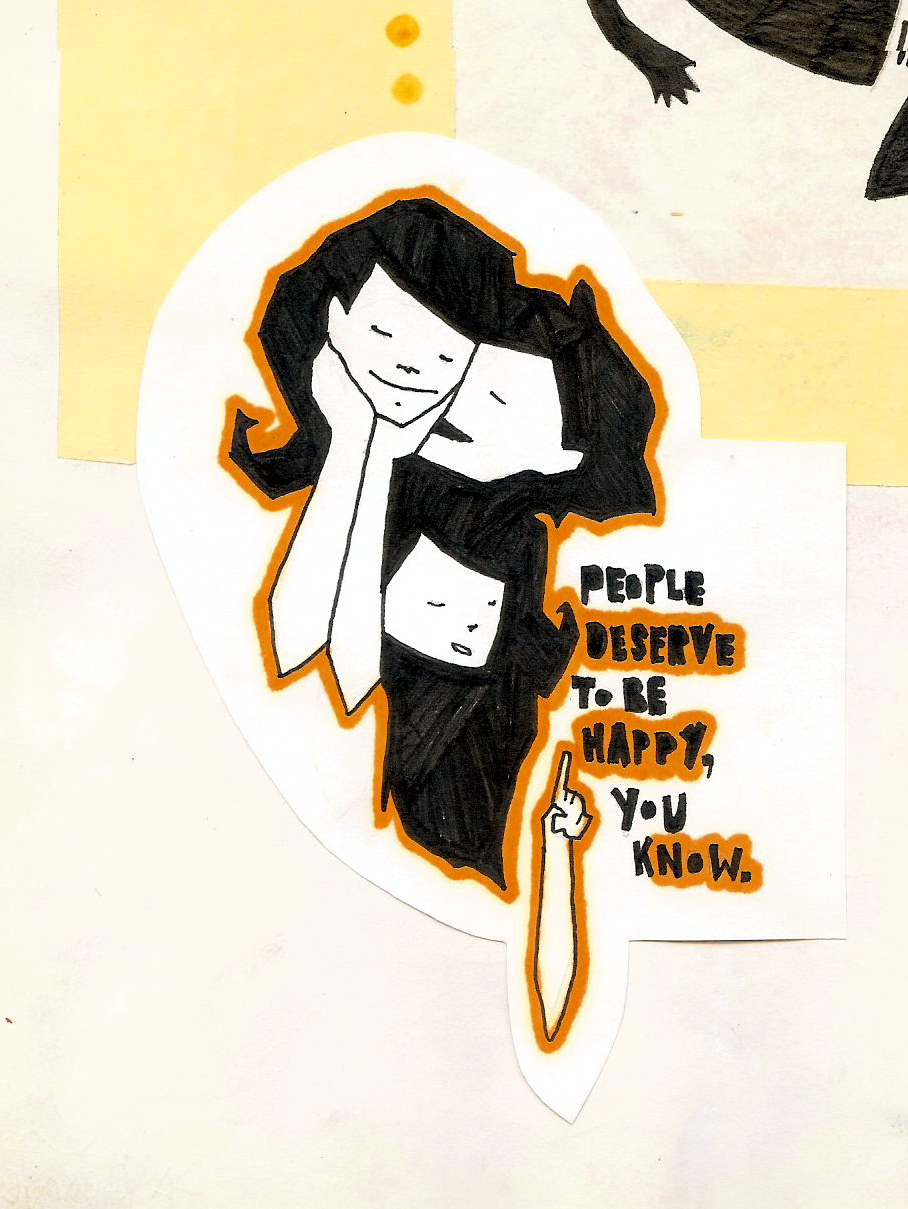 PEOPLE
DESERVE
TO BE
HAPPY,
YOU
KNOW.